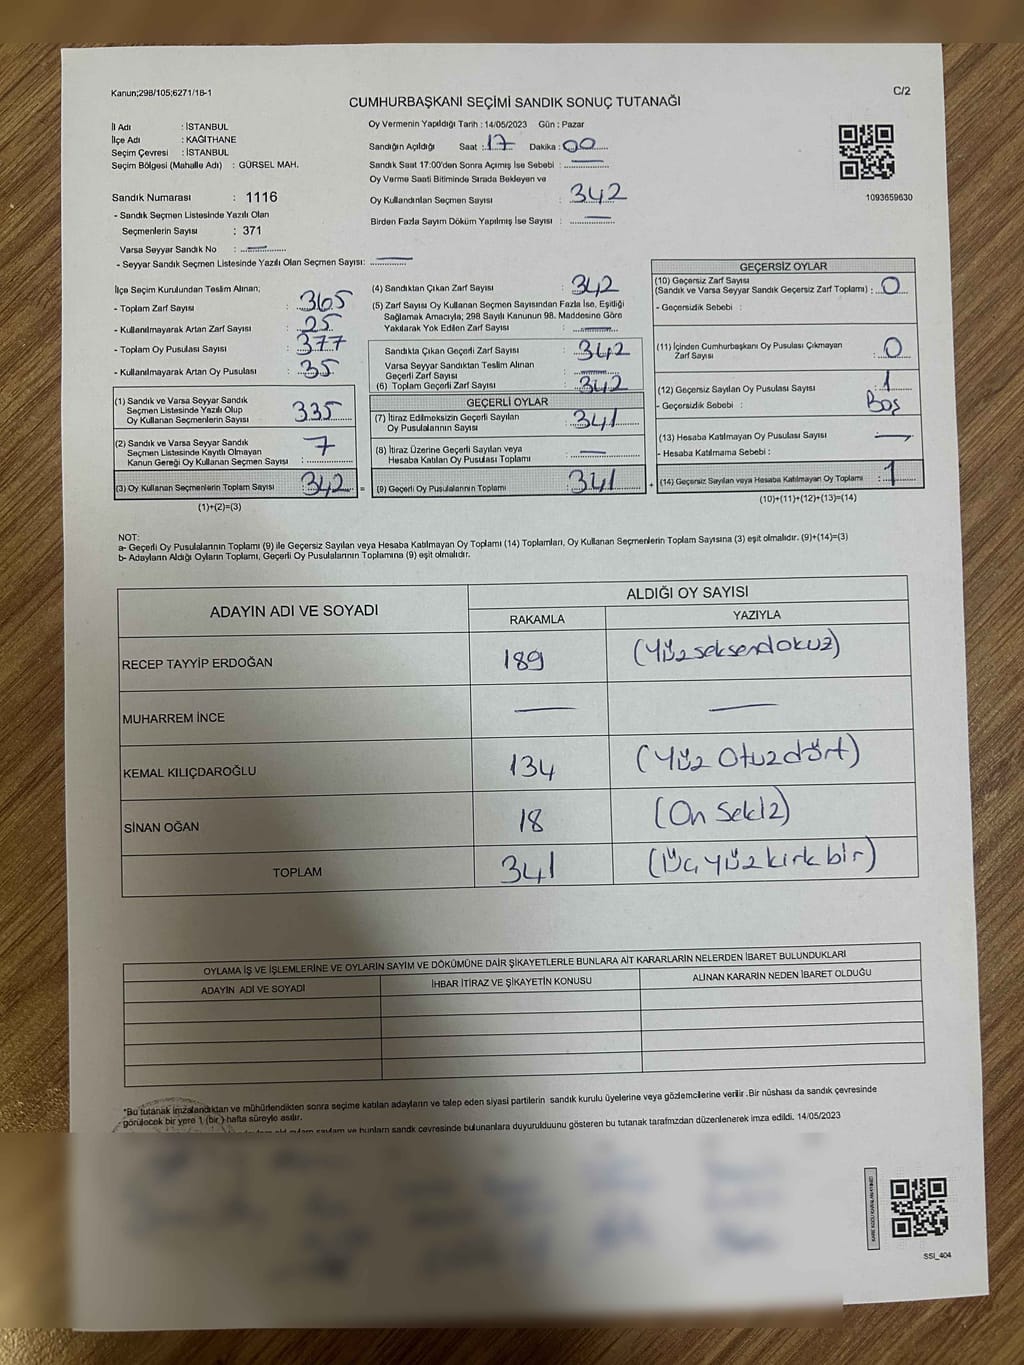 Kanun;298/105;6271/18-1
C/2
CUMHURBAŞKANI SEÇİMİ SANDIK SONUÇ TUTANAĞI
İl Adı : İSTANBUL
İlçe Adı : KAĞITHANE
Seçim Çevresi : İSTANBUL
Seçim Bölgesi (Mahalle Adı) : GÜRSEL MAH.
Sandık Numarası : 1116
- Sandık Seçmen Listesinde Yazılı Olan
Seçmenlerin Sayısı : 371
Varsa Seyyar Sandık No : —
- Seyyar Sandık Seçmen Listesinde Yazılı Olan Seçmen Sayısı: —
Oy Vermenin Yapıldığı Tarih : 14/05/2023 Gün : Pazar
Sandığın Açıldığı Saat : 17 Dakika : 00
Sandık Saat 17:00'den Sonra Açımış İse Sebebi : —
Oy Verme Saati Bitiminde Sırada Bekleyen ve
Oy Kullandırılan Seçmen Sayısı 342
Birden Fazla Sayım Döküm Yapılmış İse Sayısı : —
1093659630
İlçe Seçim Kurulundan Teslim Alınan;
- Toplam Zarf Sayısı : 365
- Kullanılmayarak Artan Zarf Sayısı : 25
- Toplam Oy Pusulası Sayısı : 377
- Kullanılmayarak Artan Oy Pusulası : 35
(1) Sandık ve Varsa Seyyar Sandık
Seçmen Listesinde Yazılı Olup
Oy Kullanan Seçmenlerin Sayısı 335
(2) Sandık ve Varsa Seyyar Sandık
Seçmen Listesinde Kayıtlı Olmayan
Kanun Gereği Oy Kullanan Seçmen Sayısı : 7
(3) Oy Kullanan Seçmenlerin Toplam Sayısı 342
(1)+(2)=(3)
=
(4) Sandıktan Çıkan Zarf Sayısı : 342
(5) Zarf Sayısı Oy Kullanan Seçmen Sayısından Fazla İse, Eşitliği
Sağlamak Amacıyla; 298 Sayılı Kanunun 98. Maddesine Göre
Yakılarak Yok Edilen Zarf Sayısı : —
Sandıkta Çıkan Geçerli Zarf Sayısı : 342
Varsa Seyyar Sandıktan Teslim Alınan
Geçerli Zarf Sayısı : —
(6) Toplam Geçerli Zarf Sayısı : 342
GEÇERLİ OYLAR
(7) İtiraz Edilmeksizin Geçerli Sayılan
Oy Pusulalarının Sayısı : 341
(8) İtiraz Üzerine Geçerli Sayılan veya
Hesaba Katılan Oy Pusulası Toplamı : —
(9) Geçerli Oy Pusulalarının Toplamı 341
+
GEÇERSİZ OYLAR
(10) Geçersiz Zarf Sayısı
(Sandık ve Varsa Seyyar Sandık Geçersiz Zarf Toplamı) : 0
- Geçersizlik Sebebi :
(11) İçinden Cumhurbaşkanı Oy Pusulası Çıkmayan
Zarf Sayısı : 0
(12) Geçersiz Sayılan Oy Pusulası Sayısı : 1
- Geçersizlik Sebebi : Boş
(13) Hesaba Katılmayan Oy Pusulası Sayısı : —
- Hesaba Katılmama Sebebi :
(14) Geçersiz Sayılan veya Hesaba Katılmayan Oy Toplamı : 1
(10)+(11)+(12)+(13)=(14)
NOT:
a- Geçerli Oy Pusulalarının Toplamı (9) ile Geçersiz Sayılan veya Hesaba Katılmayan Oy Toplamı (14) Toplamları, Oy Kullanan Seçmenlerin Toplam Sayısına (3) eşit olmalıdır. (9)+(14)=(3)
b- Adayların Aldığı Oyların Toplamı, Geçerli Oy Pusulalarının Toplamına (9) eşit olmalıdır.
ADAYIN ADI VE SOYADI ALDIĞI OY SAYISI
RAKAMLA YAZIYLA
RECEP TAYYİP ERDOĞAN 189 (Yüzseksendokuz)
MUHARREM İNCE — —
KEMAL KILIÇDAROĞLU 134 (Yüz Otuzdört)
SİNAN OĞAN 18 (On Sekiz)
TOPLAM 341 (Üç yüz kırk bir)
OYLAMA İŞ VE İŞLEMLERİNE VE OYLARIN SAYIM VE DÖKÜMÜNE DAİR ŞİKAYETLERLE BUNLARA AİT KARARLARIN NELERDEN İBARET BULUNDUKLARI
ADAYIN ADI VE SOYADI İHBAR İTİRAZ VE ŞİKAYETİN KONUSU ALINAN KARARIN NEDEN İBARET OLDUĞU
*Bu tutanak imzalandıktan ve mühürlendikten sonra seçime katılan adayların ve talep eden siyasi partilerin sandık kurulu üyelerine veya gözlemcilerine verilir. Bir nüshası da sandık çevresinde
görülecek bir yere 1 (bir) hafta süreyle asılır.
ve bunların sandık çevresinde bulunanlara duyurulduunu gösteren bu tutanak tarafımızdan düzenlenerek imza edildi. 14/05/2023
SSI_404